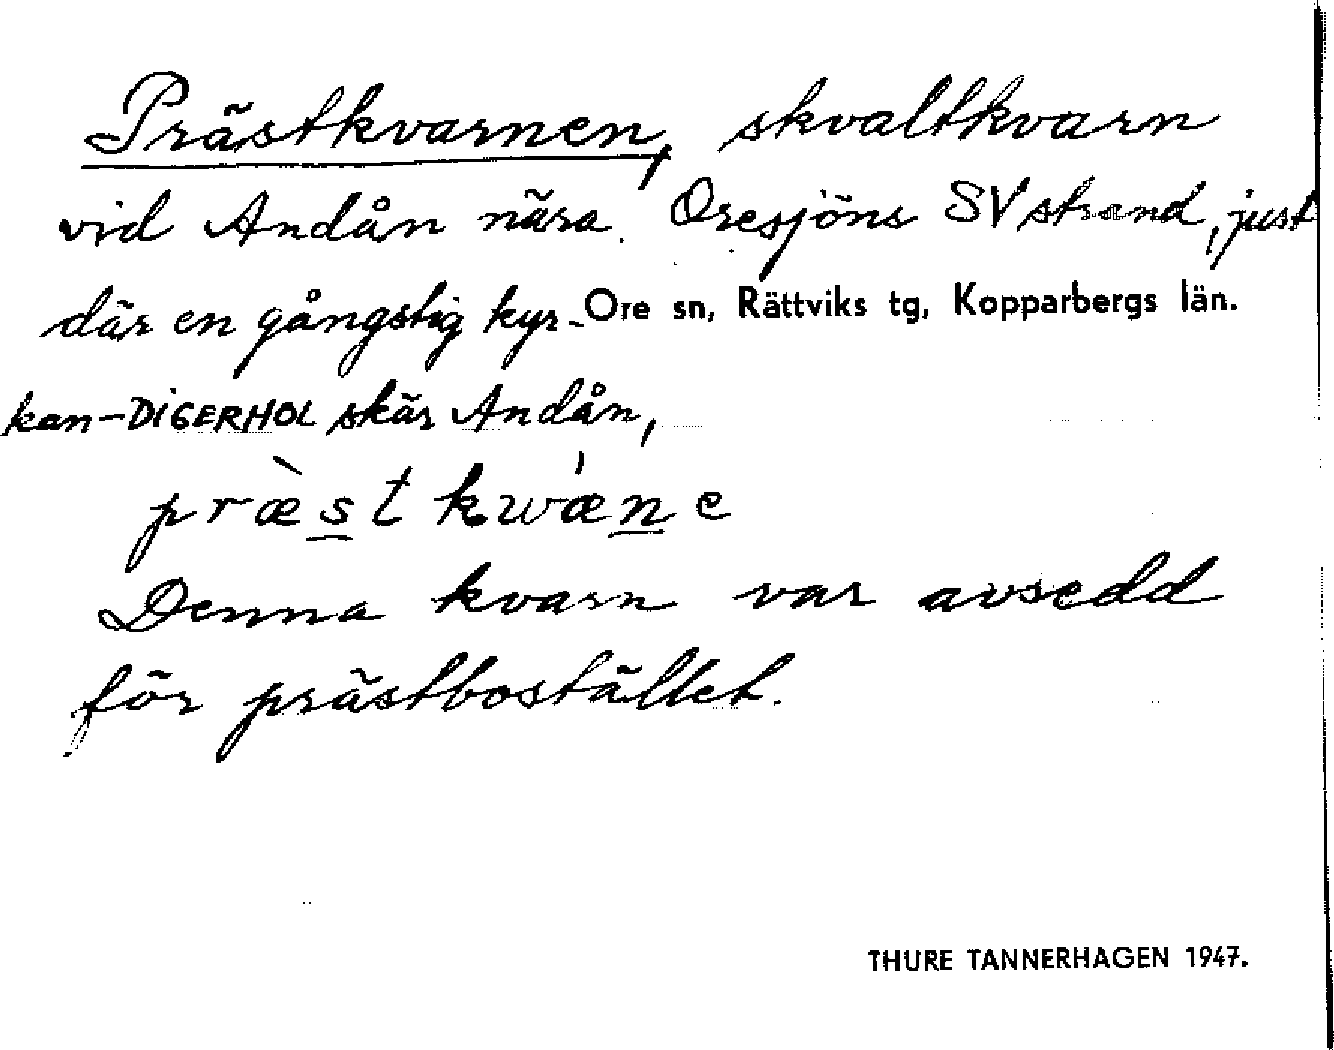 Prästkvarnen, skvaltkvarn
vid Andån nära Oresjöns SV strand, just
där en gångstig kyr-
Ore sn, Rättviks tg, Kopparbergs län.
kan-DIGERHOL skär Andån,
præ̀s̲tkwǽn̲e
Denna kvarn var avsedd
för prästbostället.
THURE TANNERHAGEN 1947.